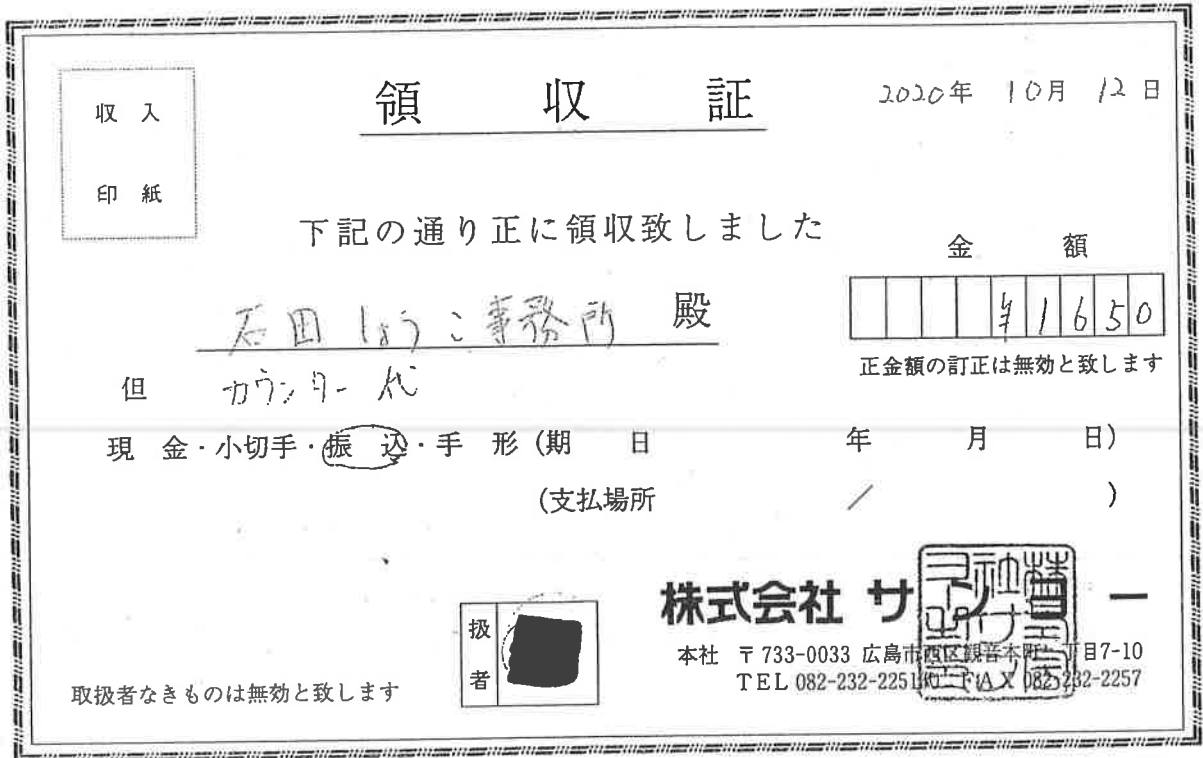 収入
印紙
領収証
2020年 10月 12日
下記の通り正に領収致しました
金額
石田しょうこ事務所 殿
¥1650
正金額の訂正は無効と致します
但 カウンター代
現金・小切手・振込・手形(期日 年 月 日)
(支払場所 / )
扱者
株式会社 サンヨー
本社 〒733-0033 広島市西区観音本町一丁目7-10
TEL 082-232-2251㈹ FAX 082-232-2257
取扱者なきものは無効と致します